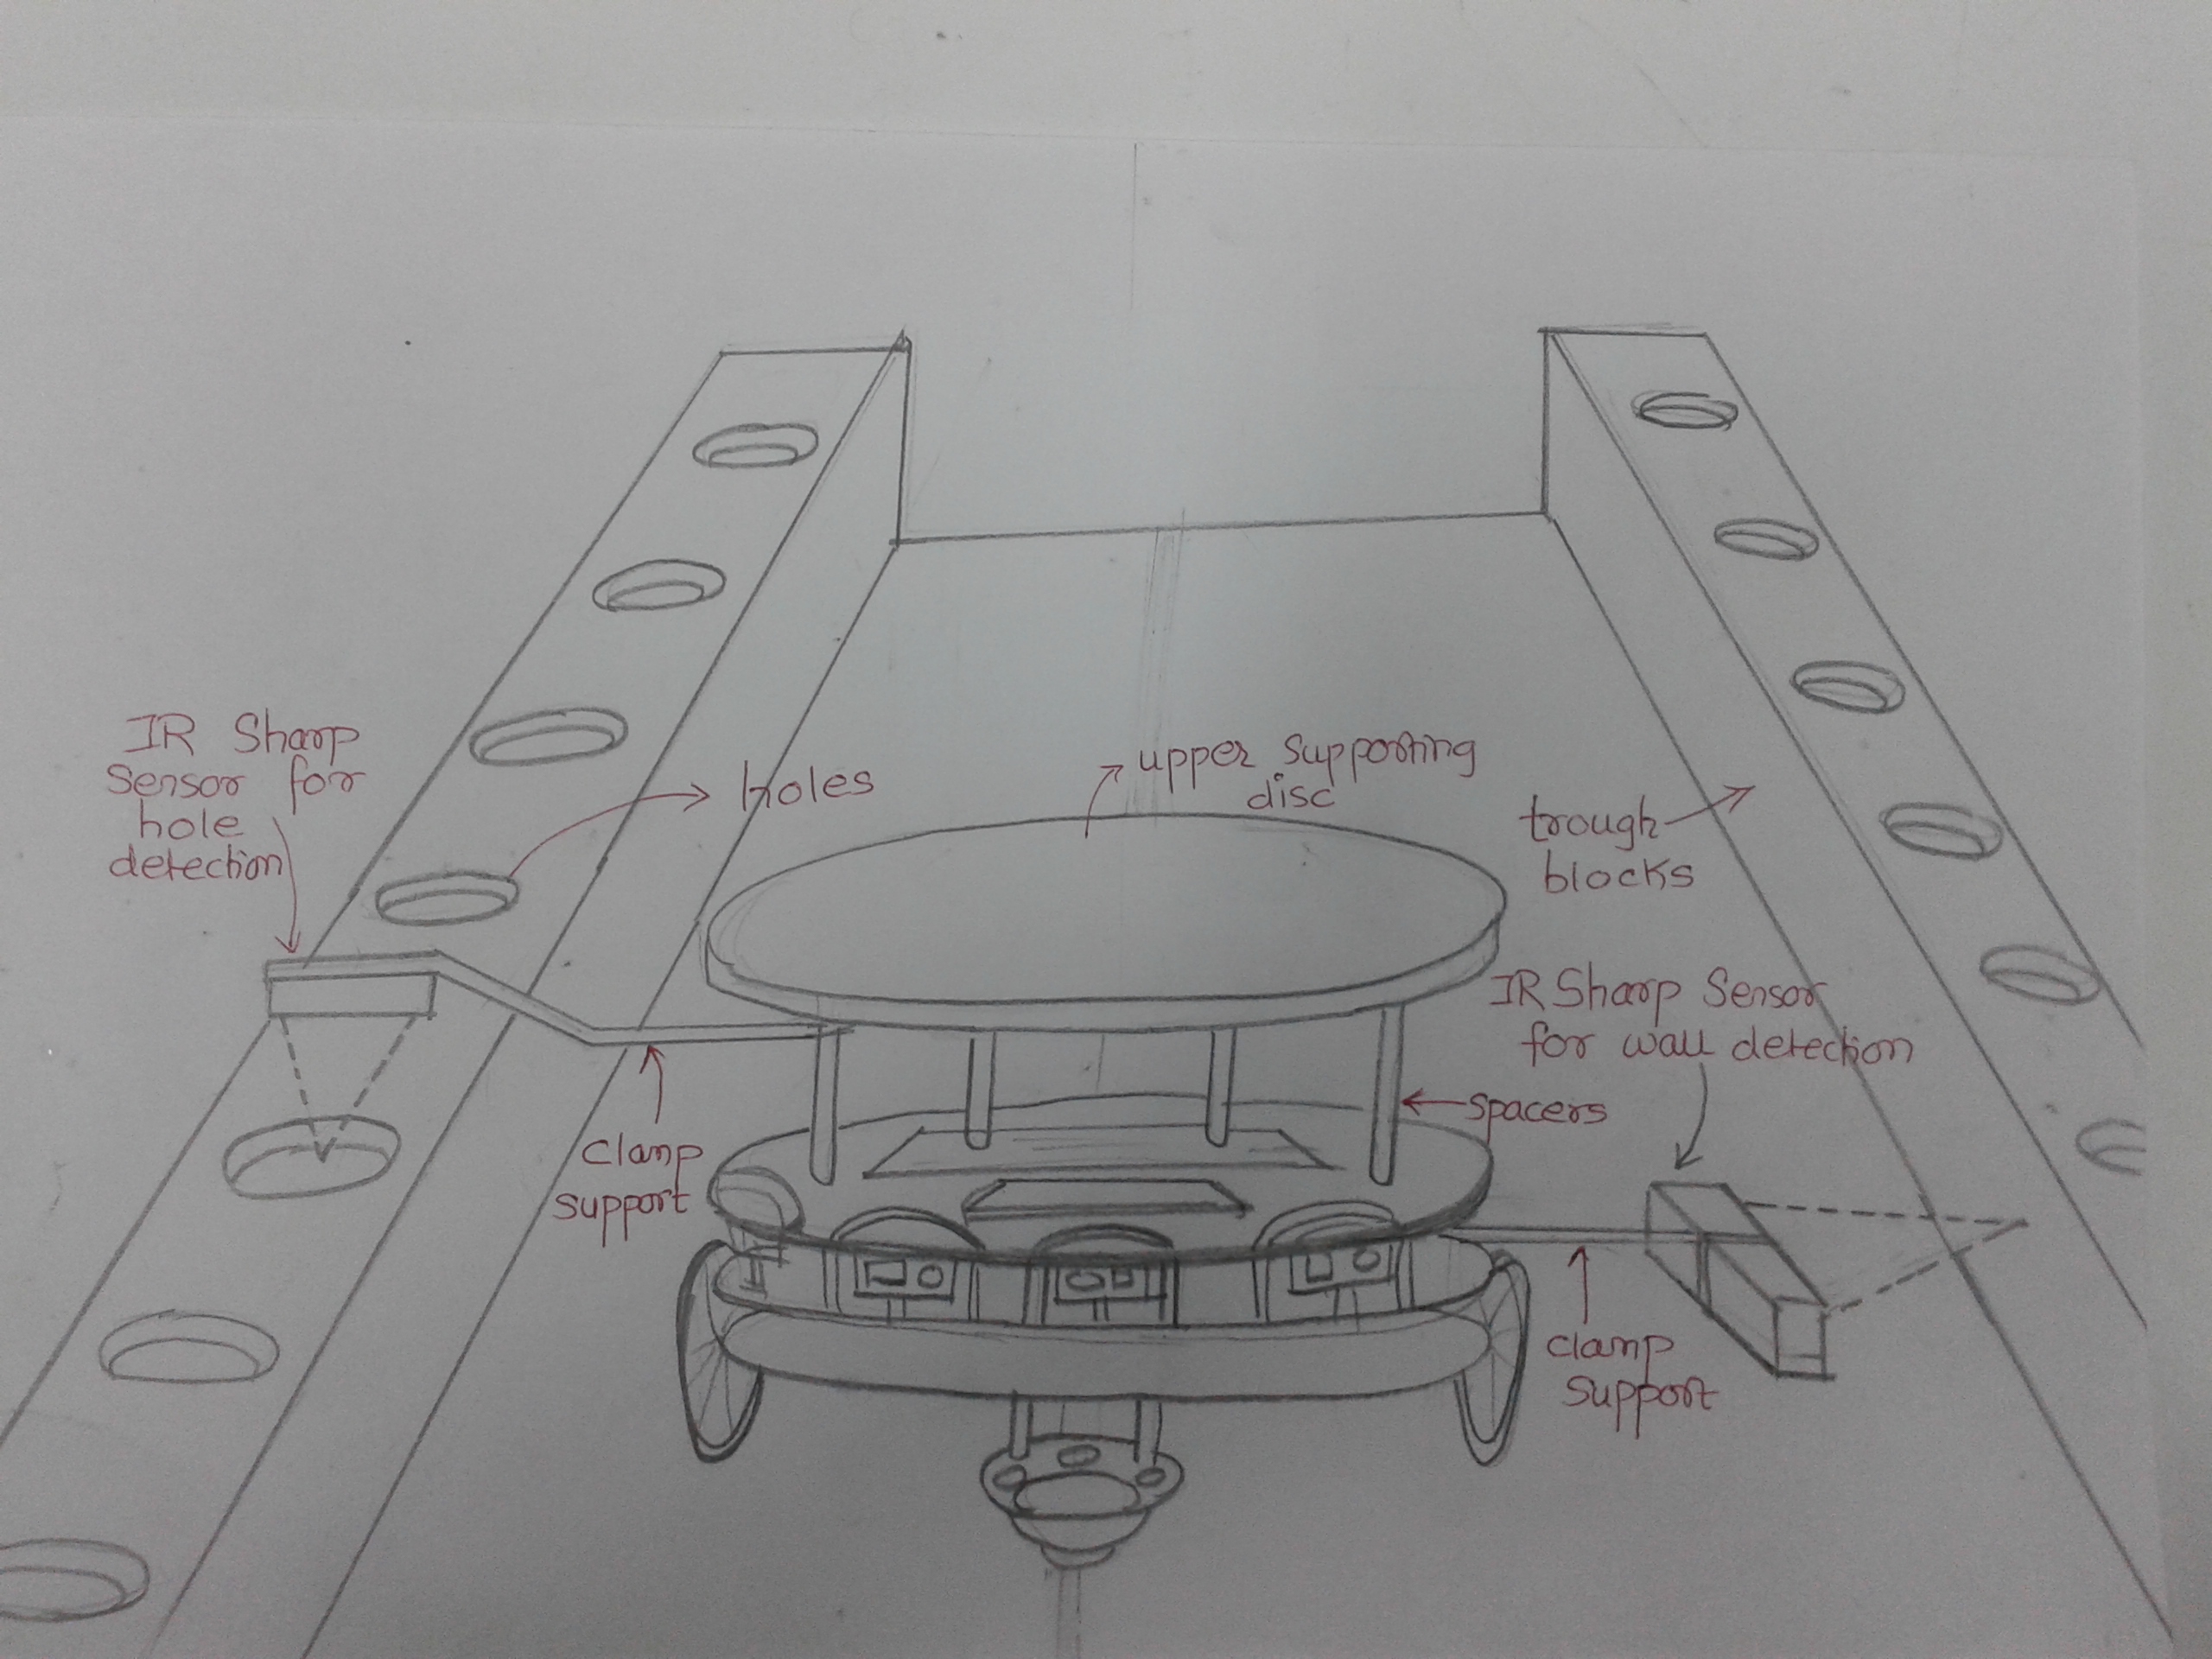 IR Sharp
Sensor for
hole
detection
holes
upper supporting
disc
trough
blocks
IR Sharp Sensor
for wall detection
spacers
clamp
support
clamp
support